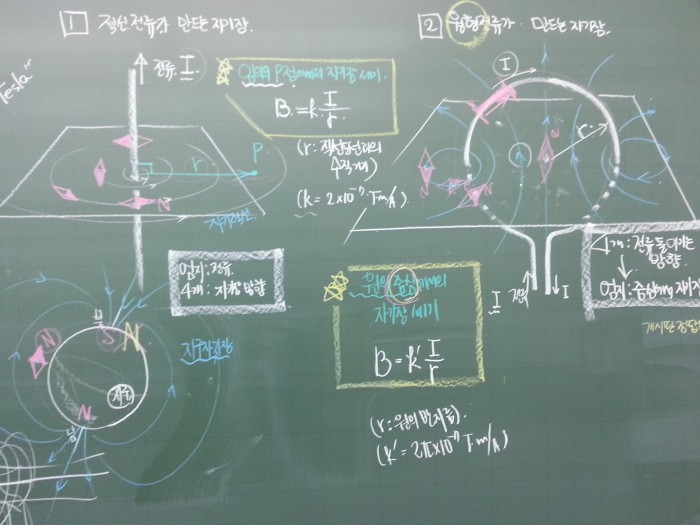 Tesla~
1 직선전류가 만드는 자기장.
전류. I
임의의 P점에서의 자기장 세기.
B = k I/r
(r : 직선도선과의
수직거리)
(k = 2×10⁻⁷ T·m/A)
r
P.
자기력선
엄지 : 전류.
4개 : 자기장 방향
지구자기장
북
S
N
N
지구
N
남
2 원형전류가 만드는 자기장.
I
r
N
N
N
전류
I
I
4개 : 전류 들어가는
방향.
엄지 : 중심에서 자기장
원의 중심에서의
자기장 세기
B = k' I/r
(r : 원의 반지름)
(k' = 2π×10⁻⁷ T·m/A)